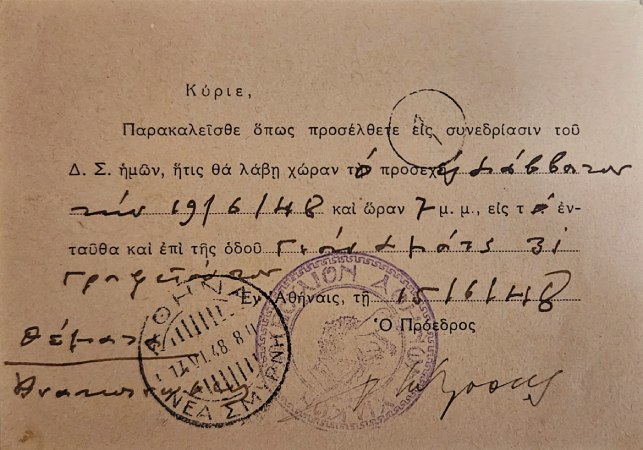 Κύριε,
Παρακαλεῖσθε ὅπως προσέλθετε εἰς συνεδρίασιν τοῦ
Δ. Σ. ἡμῶν, ἥτις θὰ λάβῃ χώραν τὸ προσεχὲς Σάββατον
τὴν 19/6/48 καὶ ὥραν 7 μ. μ., εἰς τὰ ἐν-
ταῦθα καὶ ἐπὶ τῆς ὁδοῦ 31
Ἐν Ἀθήναις, τῇ 15/6/48
Ὁ Πρόεδρος
Θέματα
Ἀνακοινώσεις
ΑΘΗΝΑΙ
48 8
ΝΕΑ ΣΜΥΡΝΗ